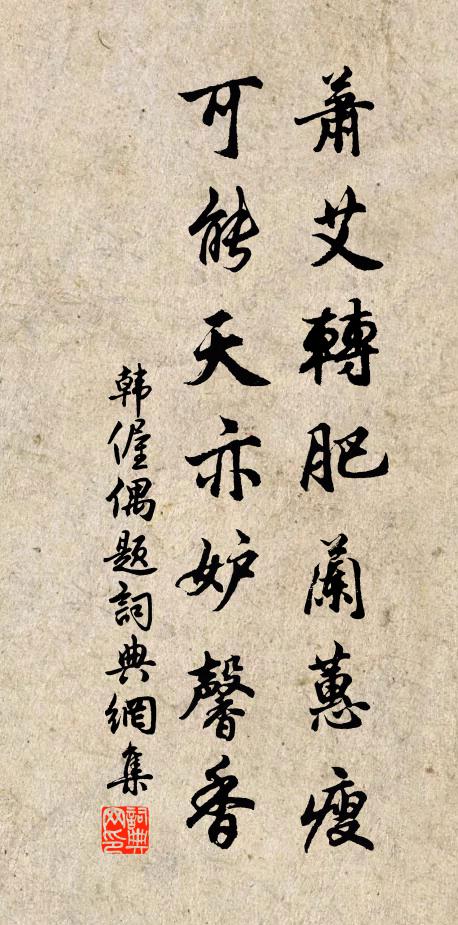 蕭艾轉肥蘭蕙瘦
可能天亦妒馨香
韩偓偶题詞典網集
詞典网印